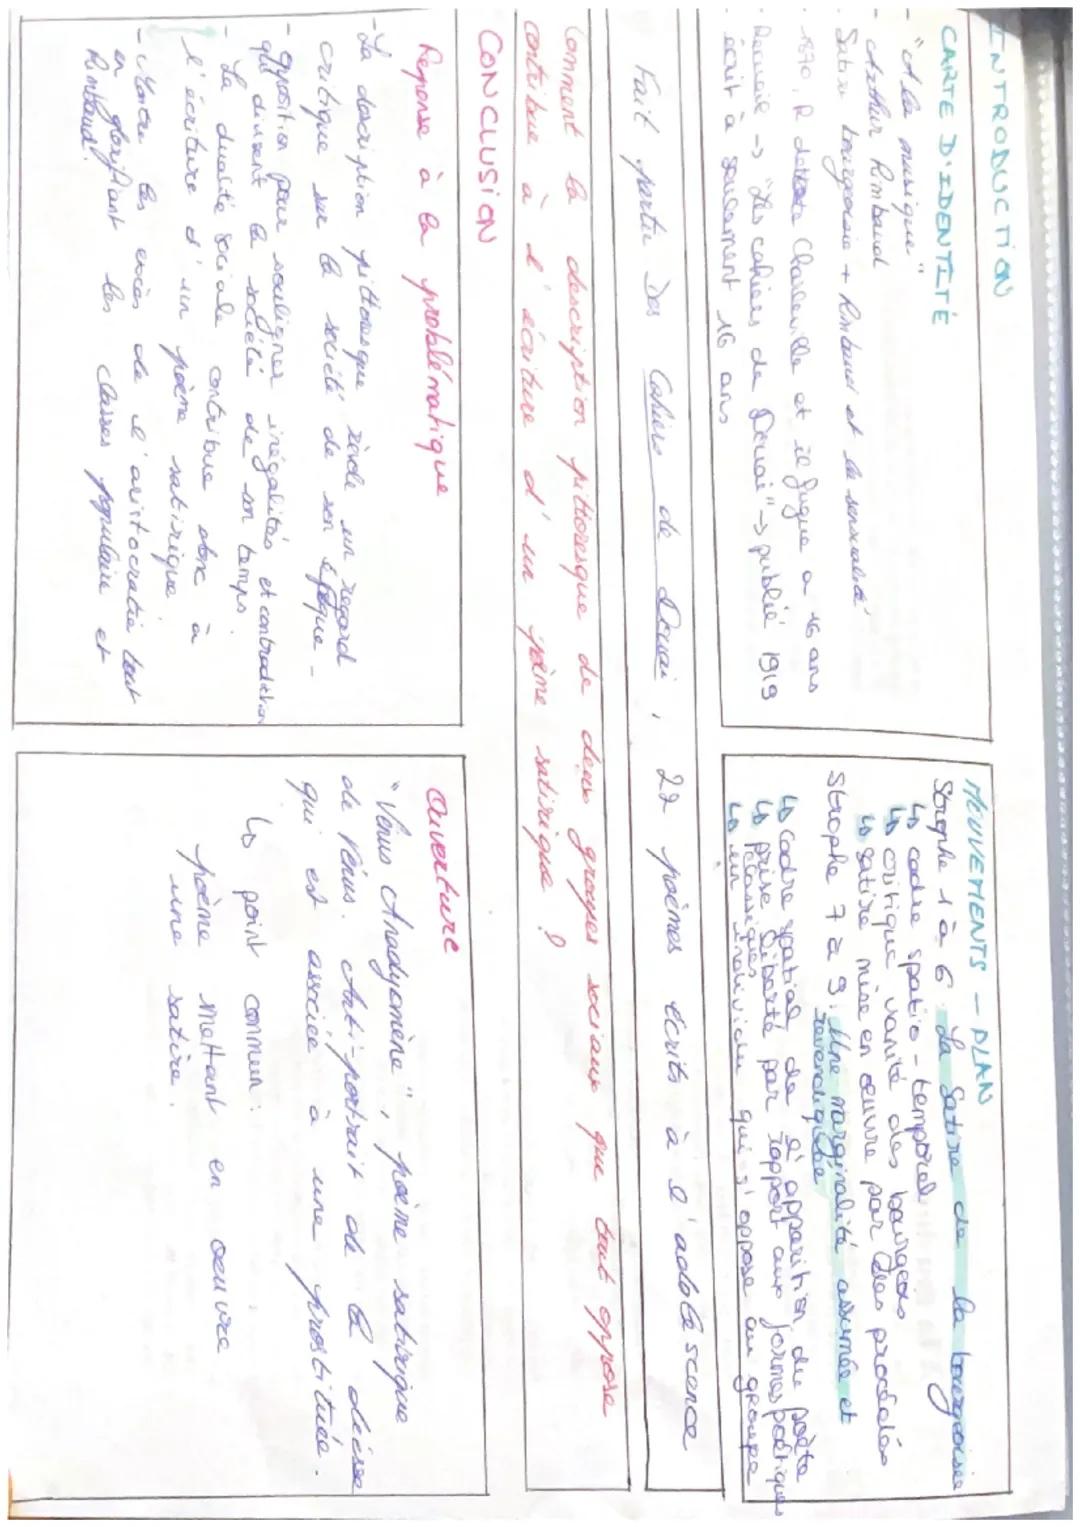 INTRODUCTION
CARTE D'IDENTITÉ
- "A la musique"
- Arthur Rimbaud
- Satire bourgeoisie + Rimbaud et la sensualité
- 1870, R déteste Charleville et il fugue a 16 ans
- Recueil -> "Les cahiers de Douai" -> publié 1919
écrit à seulement 16 ans
MOUVEMENTS - PLAN
Strophe 1 à 6 : La Satire de la bourgeoisie
↳ cadre spatio-temporel
↳ critique vanité des bourgeois
↳ satire mise en œuvre par des procédés
Strophe 7 à 9 : Une marginalité assumée et
revendiquée
↳ Cadre spatial de l'apparition du poète
↳ prise liberté par rapport aux formes poétiques
classiques
↳ un individu qui s'oppose au groupe
Fait partie des Cahiers de Douai, 22 poèmes écrits à l'adolescence
Comment la description pittoresque de deux groupes sociaux que tout oppose
contribue à l'écriture d'un poème satirique ?
CONCLUSION
Réponse à la problématique
- La description pittoresque révèle un regard
critique sur la société de son époque -
- opposition pour souligner inégalités et contradiction
qui divisent la société de son temps.
- La dualité sociale contribue donc à
l'écriture d'un poème satirique
- Montre les excès de l'aristocratie tout
en glorifiant les classes populaire et
Rimbaud.
Ouverture
"Vénus Anadyomène", poème satirique
de Vénus. Anti-portrait de la déesse
qui est associée à une prostituée.
↳ point commun :
poème mettant en oeuvre
une satire.